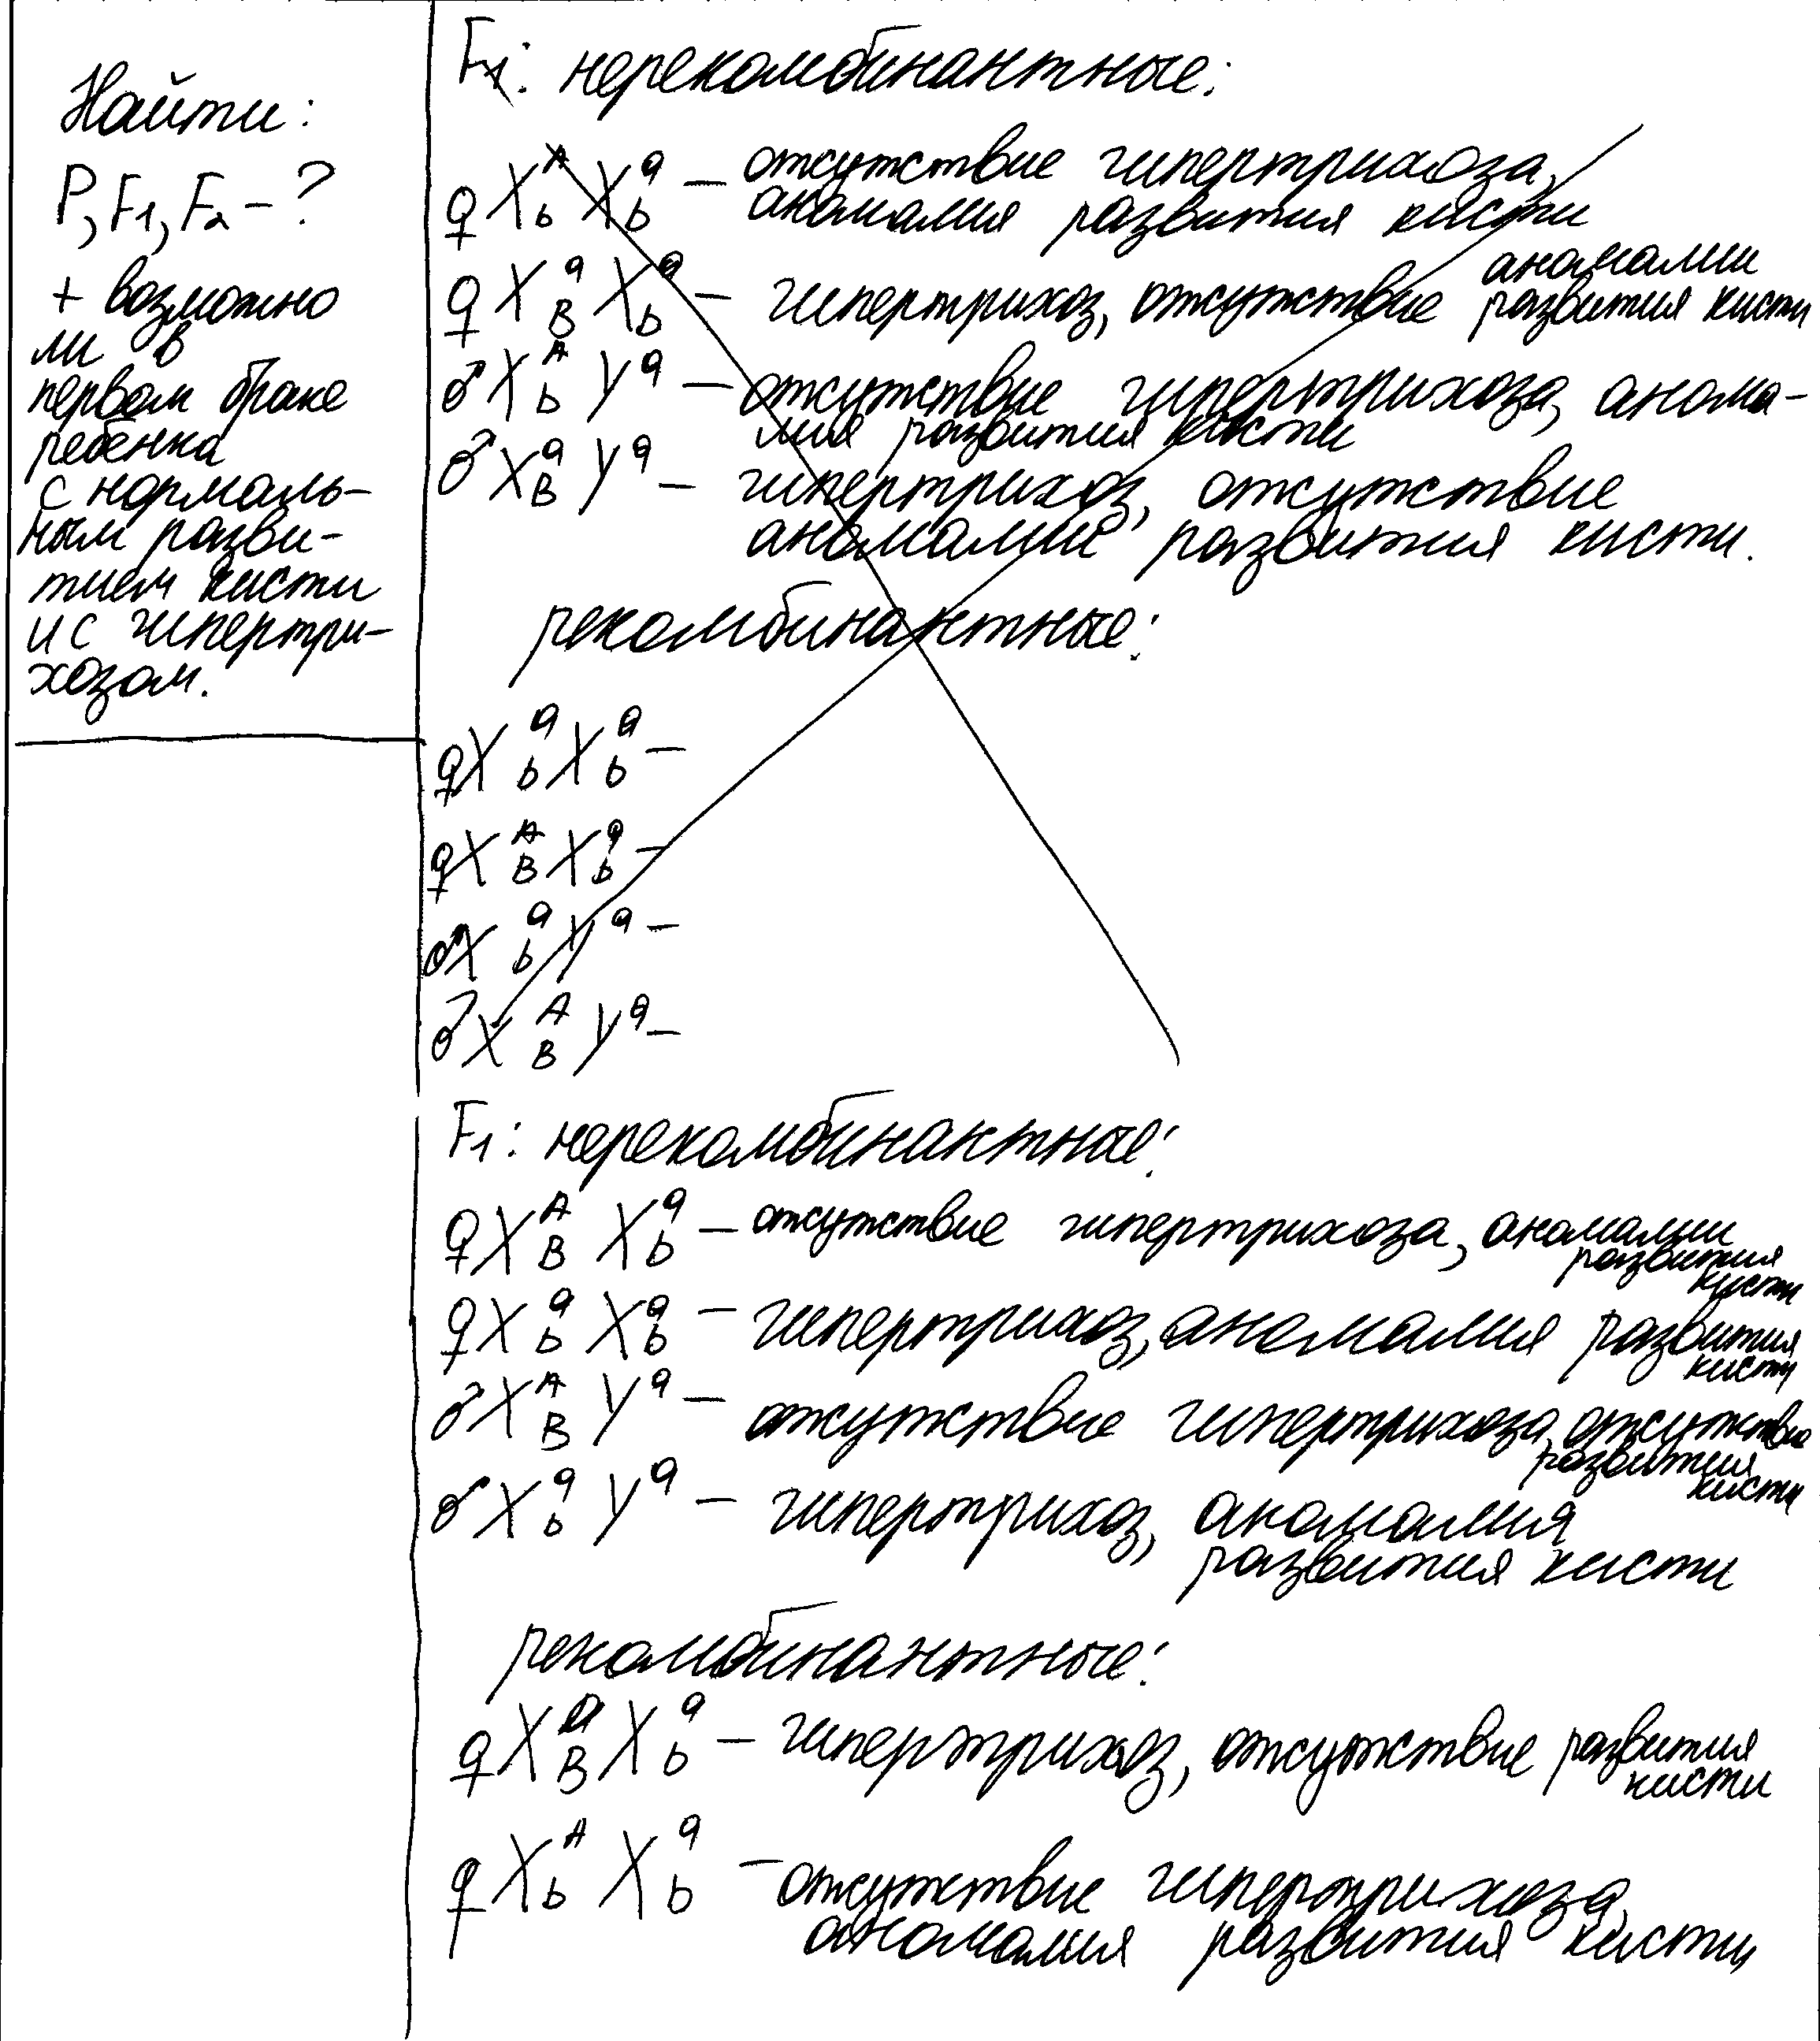 Найти:
P, F1, F2 - ?
+ возможно
ли в
первом браке
ребенка
с нормаль-
ным разви-
тием кисти
и с гипертри-
хозом.
F1: нерекомбинантные:
♀ X^A_b X^a_b – отсутствие гипертрихоза,
аномалия развития кисти
♀ X^a_B X^a_b – гипертрихоз, отсутствие аномалии
развития кисти
♂ X^A_b Y^a – отсутствие гипертрихоза, анома-
лия развития кисти
♂ X^a_B Y^a – гипертрихоз, отсутствие
аномалии развития кисти.
рекомбинантные:
♀ X^a_b X^a_b –
♀ X^A_B X^a_b –
♂ X^a_b Y^a –
♂ X^A_B Y^a –
F1: нерекомбинантные:
♀ X^A_B X^a_b – отсутствие гипертрихоза, аномалии
развития
кисти
♀ X^a_b X^a_b – гипертрихоз, аномалия развития
кисти
♂ X^A_B Y^a – отсутствие гипертрихоза, отсутствие
развития
кисти
♂ X^a_b Y^a – гипертрихоз, аномалия
развития кисти
рекомбинантные:
♀ X^a_B X^a_b – гипертрихоз, отсутствие развития
кисти
♀ X^A_b X^a_b – отсутствие гипертрихоза,
аномалия развития кисти